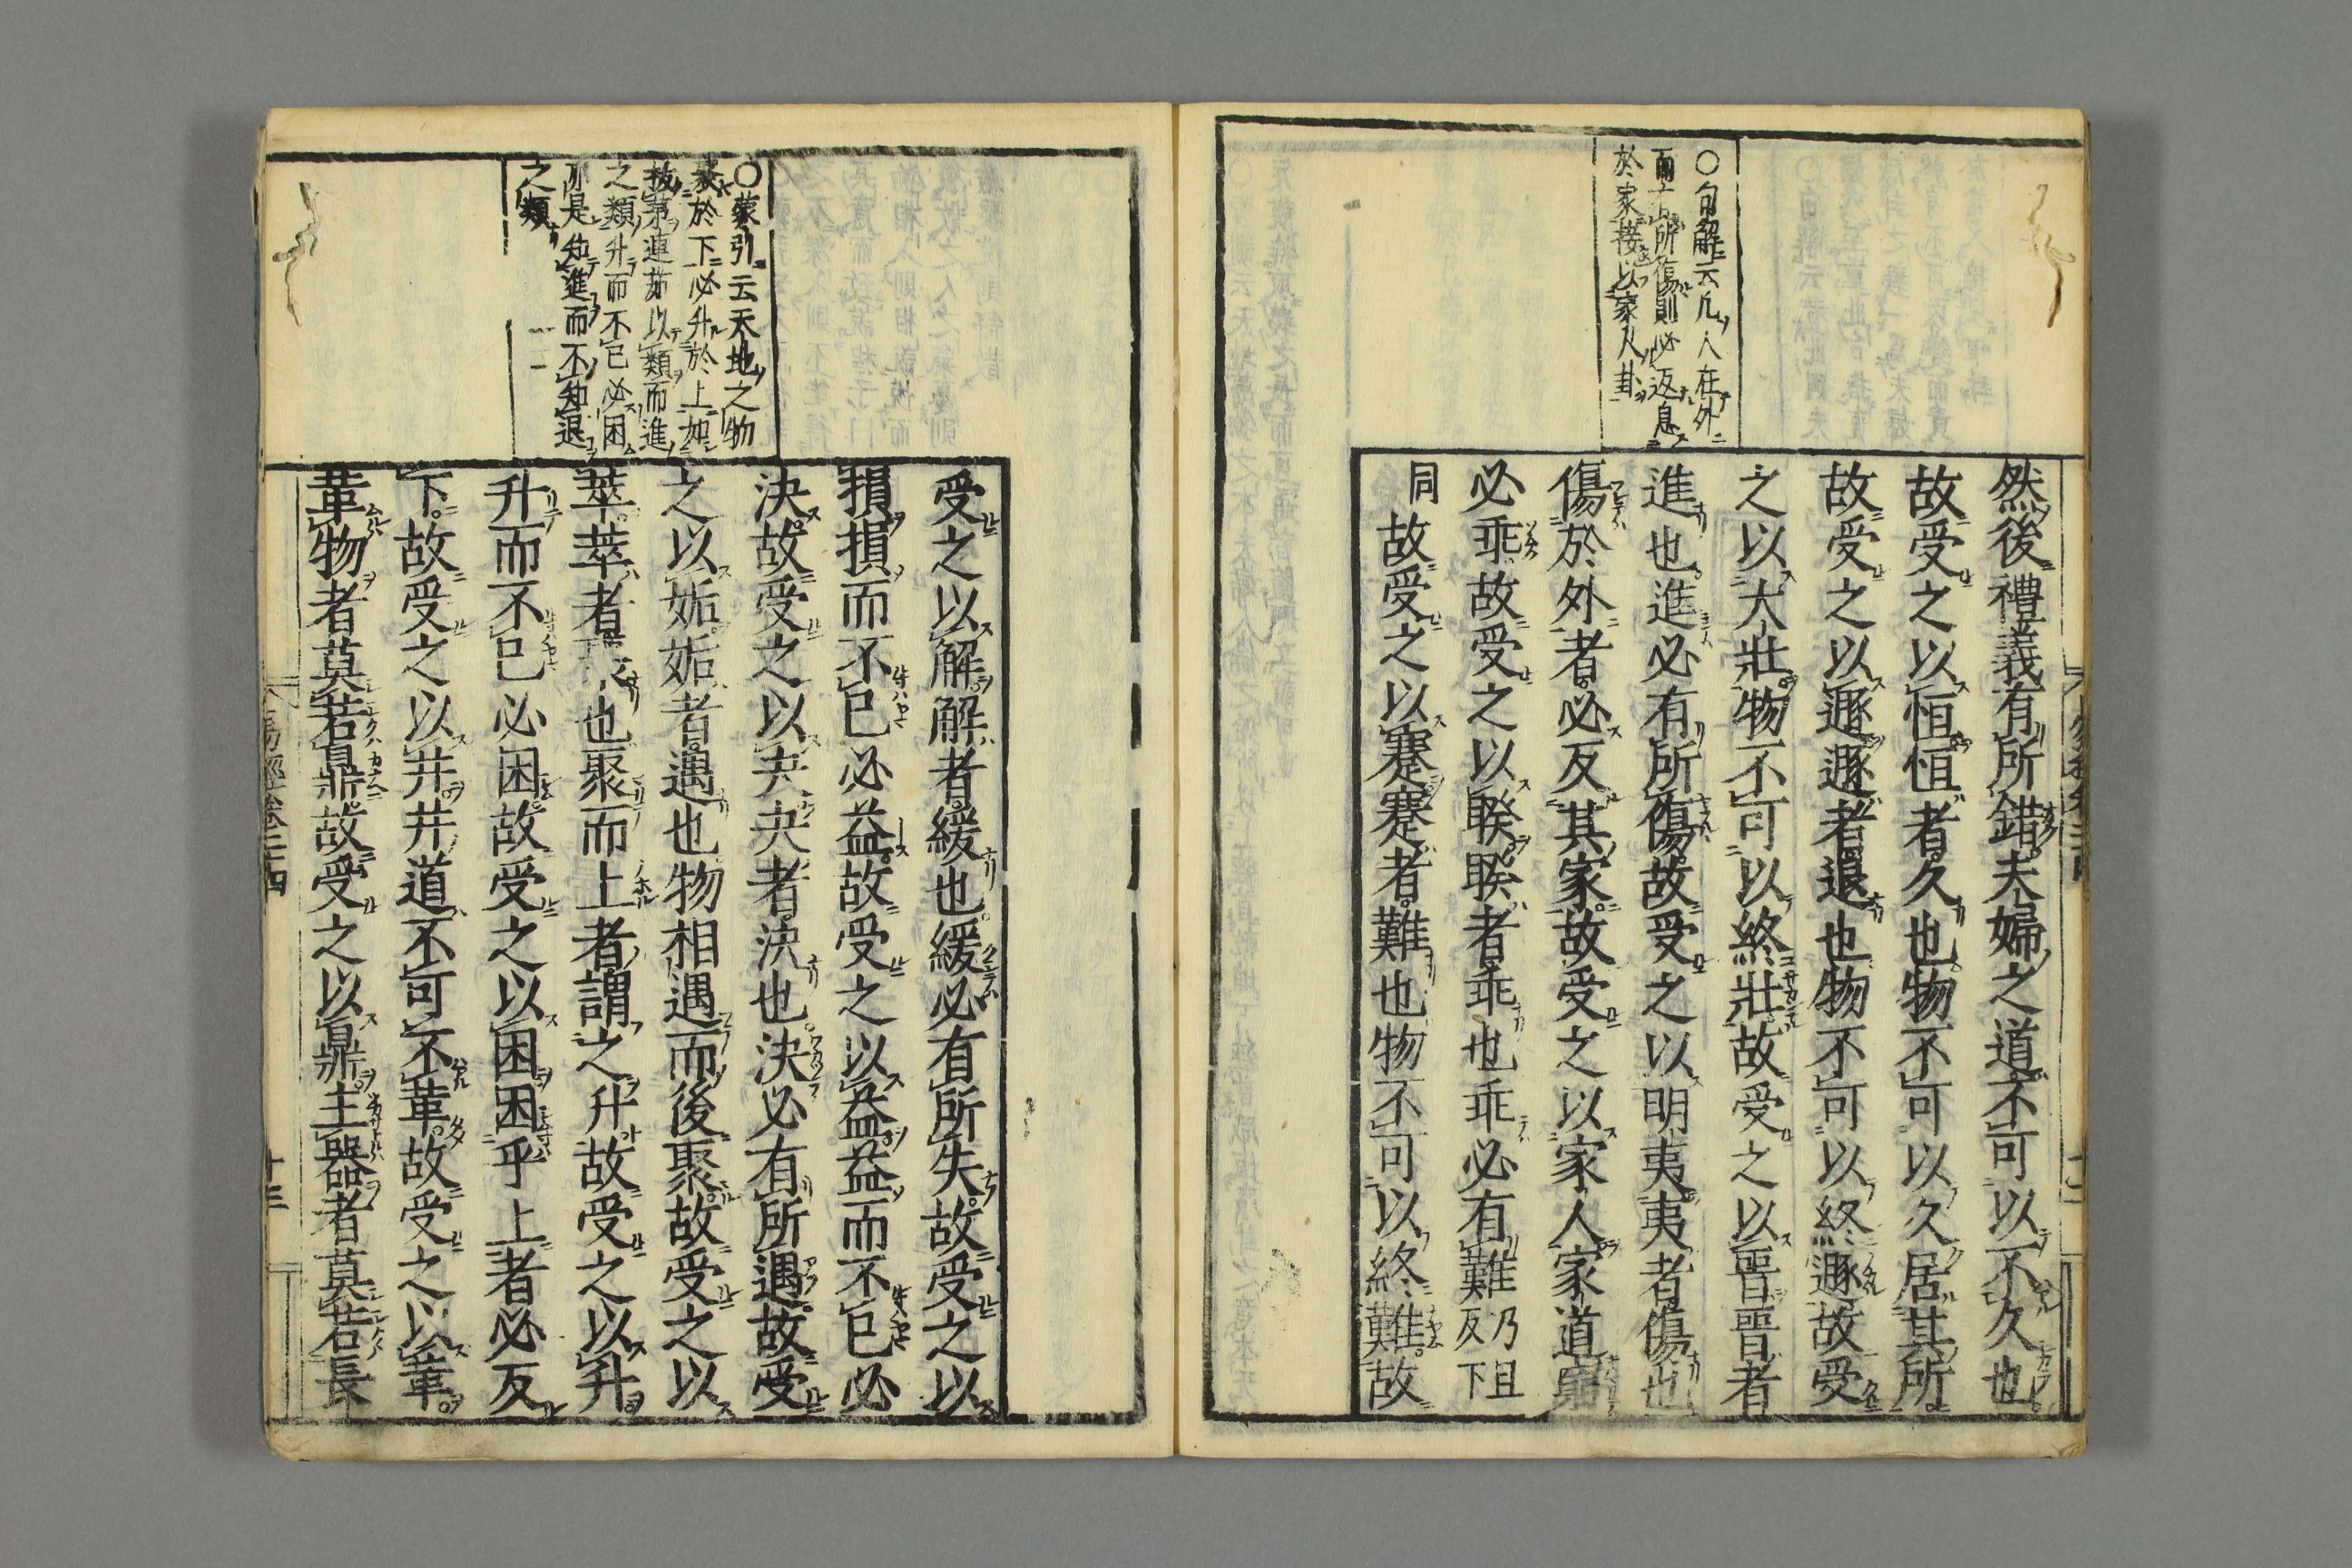 〇句解云凡人在外
而有所傷則必返息
於家接以家人卦
然後禮義有所錯夫婦之道不可以不久也
故受之以恒恒者久也物不可以久居其所
故受之以遯遯者退也物不可以終遯故受
之以大壯物不可以終壯故受之以晉晉者
進也進必有所傷故受之以明夷夷者傷也
傷於外者必反其家故受之以家人家道窮
必乖故受之以睽睽者乖也乖必有難乃且反下
同故受之以蹇蹇者難也物不可以終難故
〇蒙引云天地之物
聚於下必升於上如
拔茅連茹以類而進
之類升而不已必困
亦是知進而不知退
之類
受之以解解者緩也緩必有所失故受之以
損損而不已必益故受之以益益而不已必
決故受之以夬夬者決也決必有所遇故受
之以姤姤者遇也物相遇而後聚故受之以
萃萃者聚也聚而上者謂之升故受之以升
升而不已必困故受之以困困乎上者必反
下故受之以井井道不可不革故受之以革
革物者莫若鼎故受之以鼎主器者莫若長
易經卷之四 十三